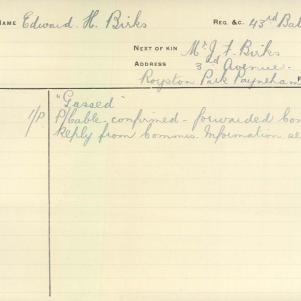 NAME Edward H. Birks REG. &C. 43rd Bat
NEXT OF KIN Mr. J. F. Birks
ADDRESS 3rd Avenue -
Royston Park Payneham
"Gassed"
1/P P/Cable confirmed - forwarded Com
Reply from Commis. Information se